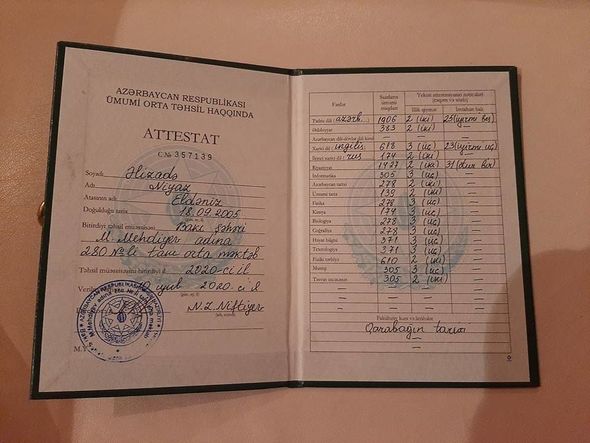 AZƏRBAYCAN RESPUBLİKASI
ÜMUMİ ORTA TƏHSİL HAQQINDA
ATTESTAT
C № 357139
Soyadı Əlizadə
Adı Niyaz
Atasının adı Eldəniz
Doğulduğu tarix 18.09.2005
Bitirdiyi təhsil müəssisəsi Bakı şəhəri
M. Mehdiyev adına
280 №-li tam orta məktəb
Təhsil müəssisəsini bitirdiyi il 2020-ci il
10 iyul 2020-ci il
M.Y.
Fənlər
Saatların ümumi miqdarı
Yekun attestasiyanın nəticələri (rəqəm və sözlə)
İllik qiymət
İmtahan balı
Tədris dili (azərb. ) 1906 2 (iki) 25 (iyirmi beş)
Ədəbiyyat 383 2 (iki) —
Xarici dil (ingilis ) 618 3 (üç) 23 (iyirmi üç)
İkinci xarici dil (rus 174 2 (iki) —
Riyaziyyat 2 (iki)
İnformatika 305 3 (üç) —
Azərbaycan tarixi 278 2 (iki) —
Ümumi tarix 2 (iki) —
Fizika 278 3 (üç) —
Kimya 174 3 (üç) —
Biologiya 278 3 (üç) —
Coğrafiya 278 3 (üç) —
Həyat bilgisi 371 3 (üç) —
Texnologiya 371 3 (üç) —
Fiziki tərbiyə 610 2 (iki) —
Musiqi 305 3 (üç) —
Təsviri incəsənət 305 2 (iki) —
Fakültativ kurs və dərnəklər
Qarabağın tarixi